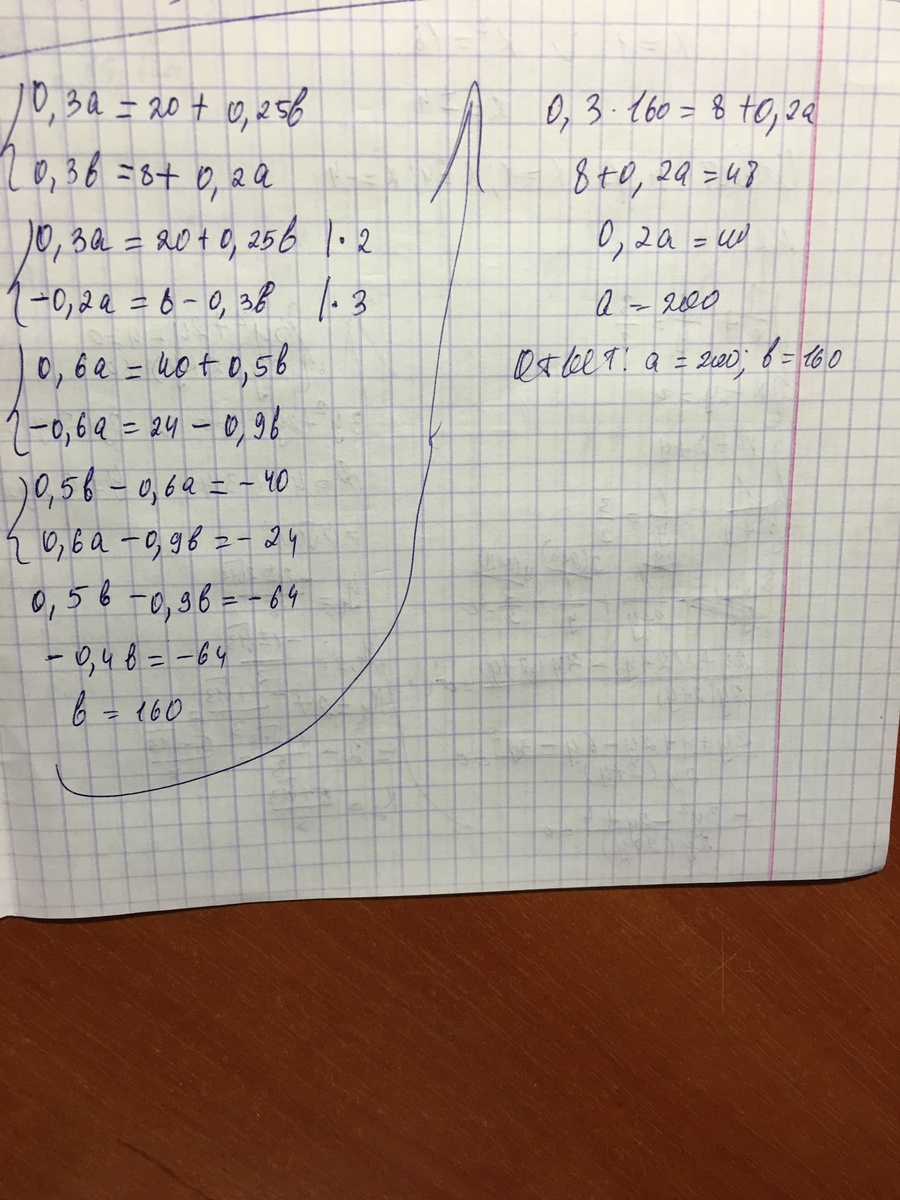 0,3a = 20 + 0,25в
0,3в = 8 + 0,2a
0,3a = 20 + 0,25в |· 2
-0,2a = 8 - 0,3в |· 3
0,6a = 40 + 0,5в
-0,6a = 24 - 0,9в
0,5в - 0,6a = -40
0,6a - 0,9в = -24
0,5в - 0,9в = -64
-0,4в = -64
в = 160
0,3 · 160 = 8 + 0,2a
8 + 0,2a = 48
0,2a = 40
a = 200
Ответ: a = 200; в = 160